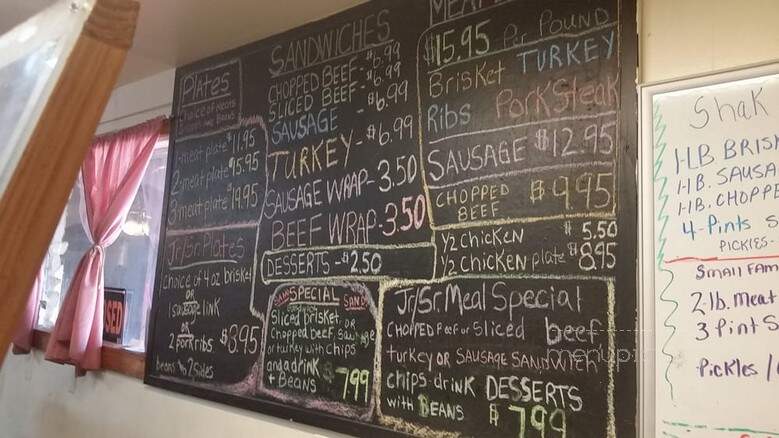 Plates
Choice of Meats
1-meat plate $11.95
2-meat plate $15.95
3-meat plate $19.95
Jr/Sr Plates
choice of 4 oz brisket
OR
1 sausage link
OR
2 pork ribs $8.95
beans 2 sides
SANDWICHES
CHOPPED BEEF - $6.99
SLICED BEEF - $6.99
SAUSAGE - $6.99
TURKEY - $6.99
SAUSAGE WRAP - 3.50
BEEF WRAP - 3.50
DESSERTS - $2.50
SPECIAL
Sliced brisket, OR
Chopped beef,
or turkey with chips
and a drink
+ Beans $7.99
$15.95 Per Pound
Brisket TURKEY
Ribs Pork Steak
SAUSAGE $12.95
CHOPPED
BEEF $9.95
1/2 CHICKEN $5.50
1/2 Chicken plate $8.95
Jr/Sr. Meal Special
CHOPPED Beef or Sliced beef,
turkey OR SAUSAGE SANDWICH
chips - drink DESSERTS
with BEANS $7.99
SED
Shak
1-LB BRISK
1-LB. SAUSA
1-LB. CHOPP
4-Pints S
PICKLES
Small Fam
2 lb. Meat
3 Pint S
Pickles /
menupi